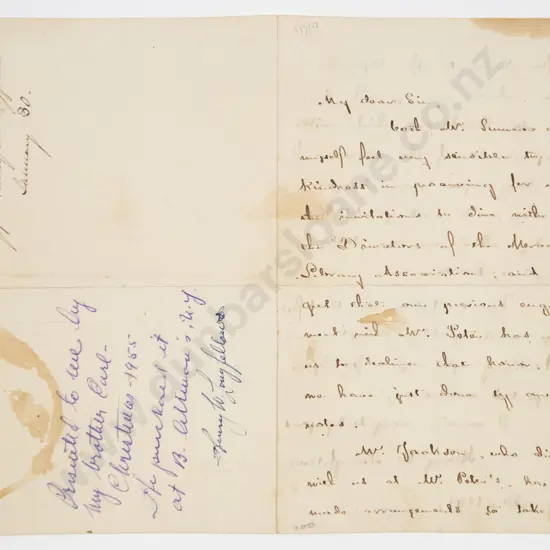 January 30.
Presented to me by
my brother Carl-
Christmas-1955
He purchased it
at B. Altman's, N.Y.
Henry W. Longfellow
My dear Sir,
Both Mr. Sumner
myself feel very sensibly
kindness in procuring for
the invitations to dine with
the Directors of the
Library Association; and
that our previous
with Mr. Peter has
us to decline that honor,
we have just done by
notes.
Mr. Jackson, who
with us at Mr. Peter's, has
made arrangements to take
www.dunbarsloane.co.nz